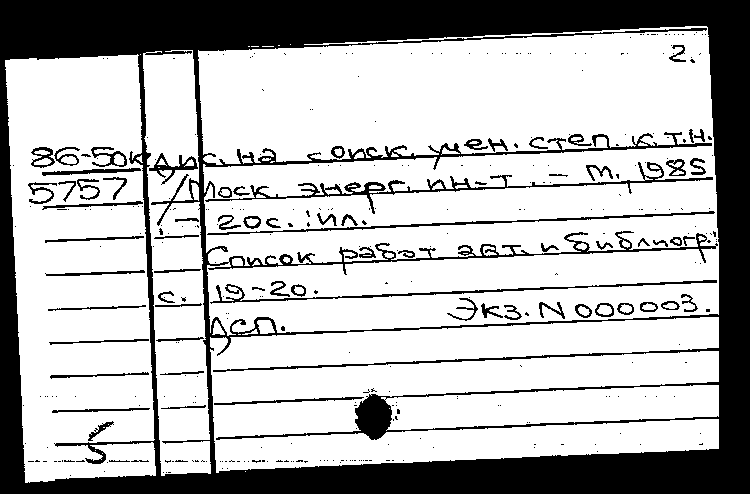 2.
86-50к дис. на соиск. учен. степ. к.т.н.
5757 /Моск. энерг. ин-т. – М., 1985
. – 20с.: ил.
Список работ авт. и библиогр.:
с. 19-20.
ДСП. Экз. N 000003.
5